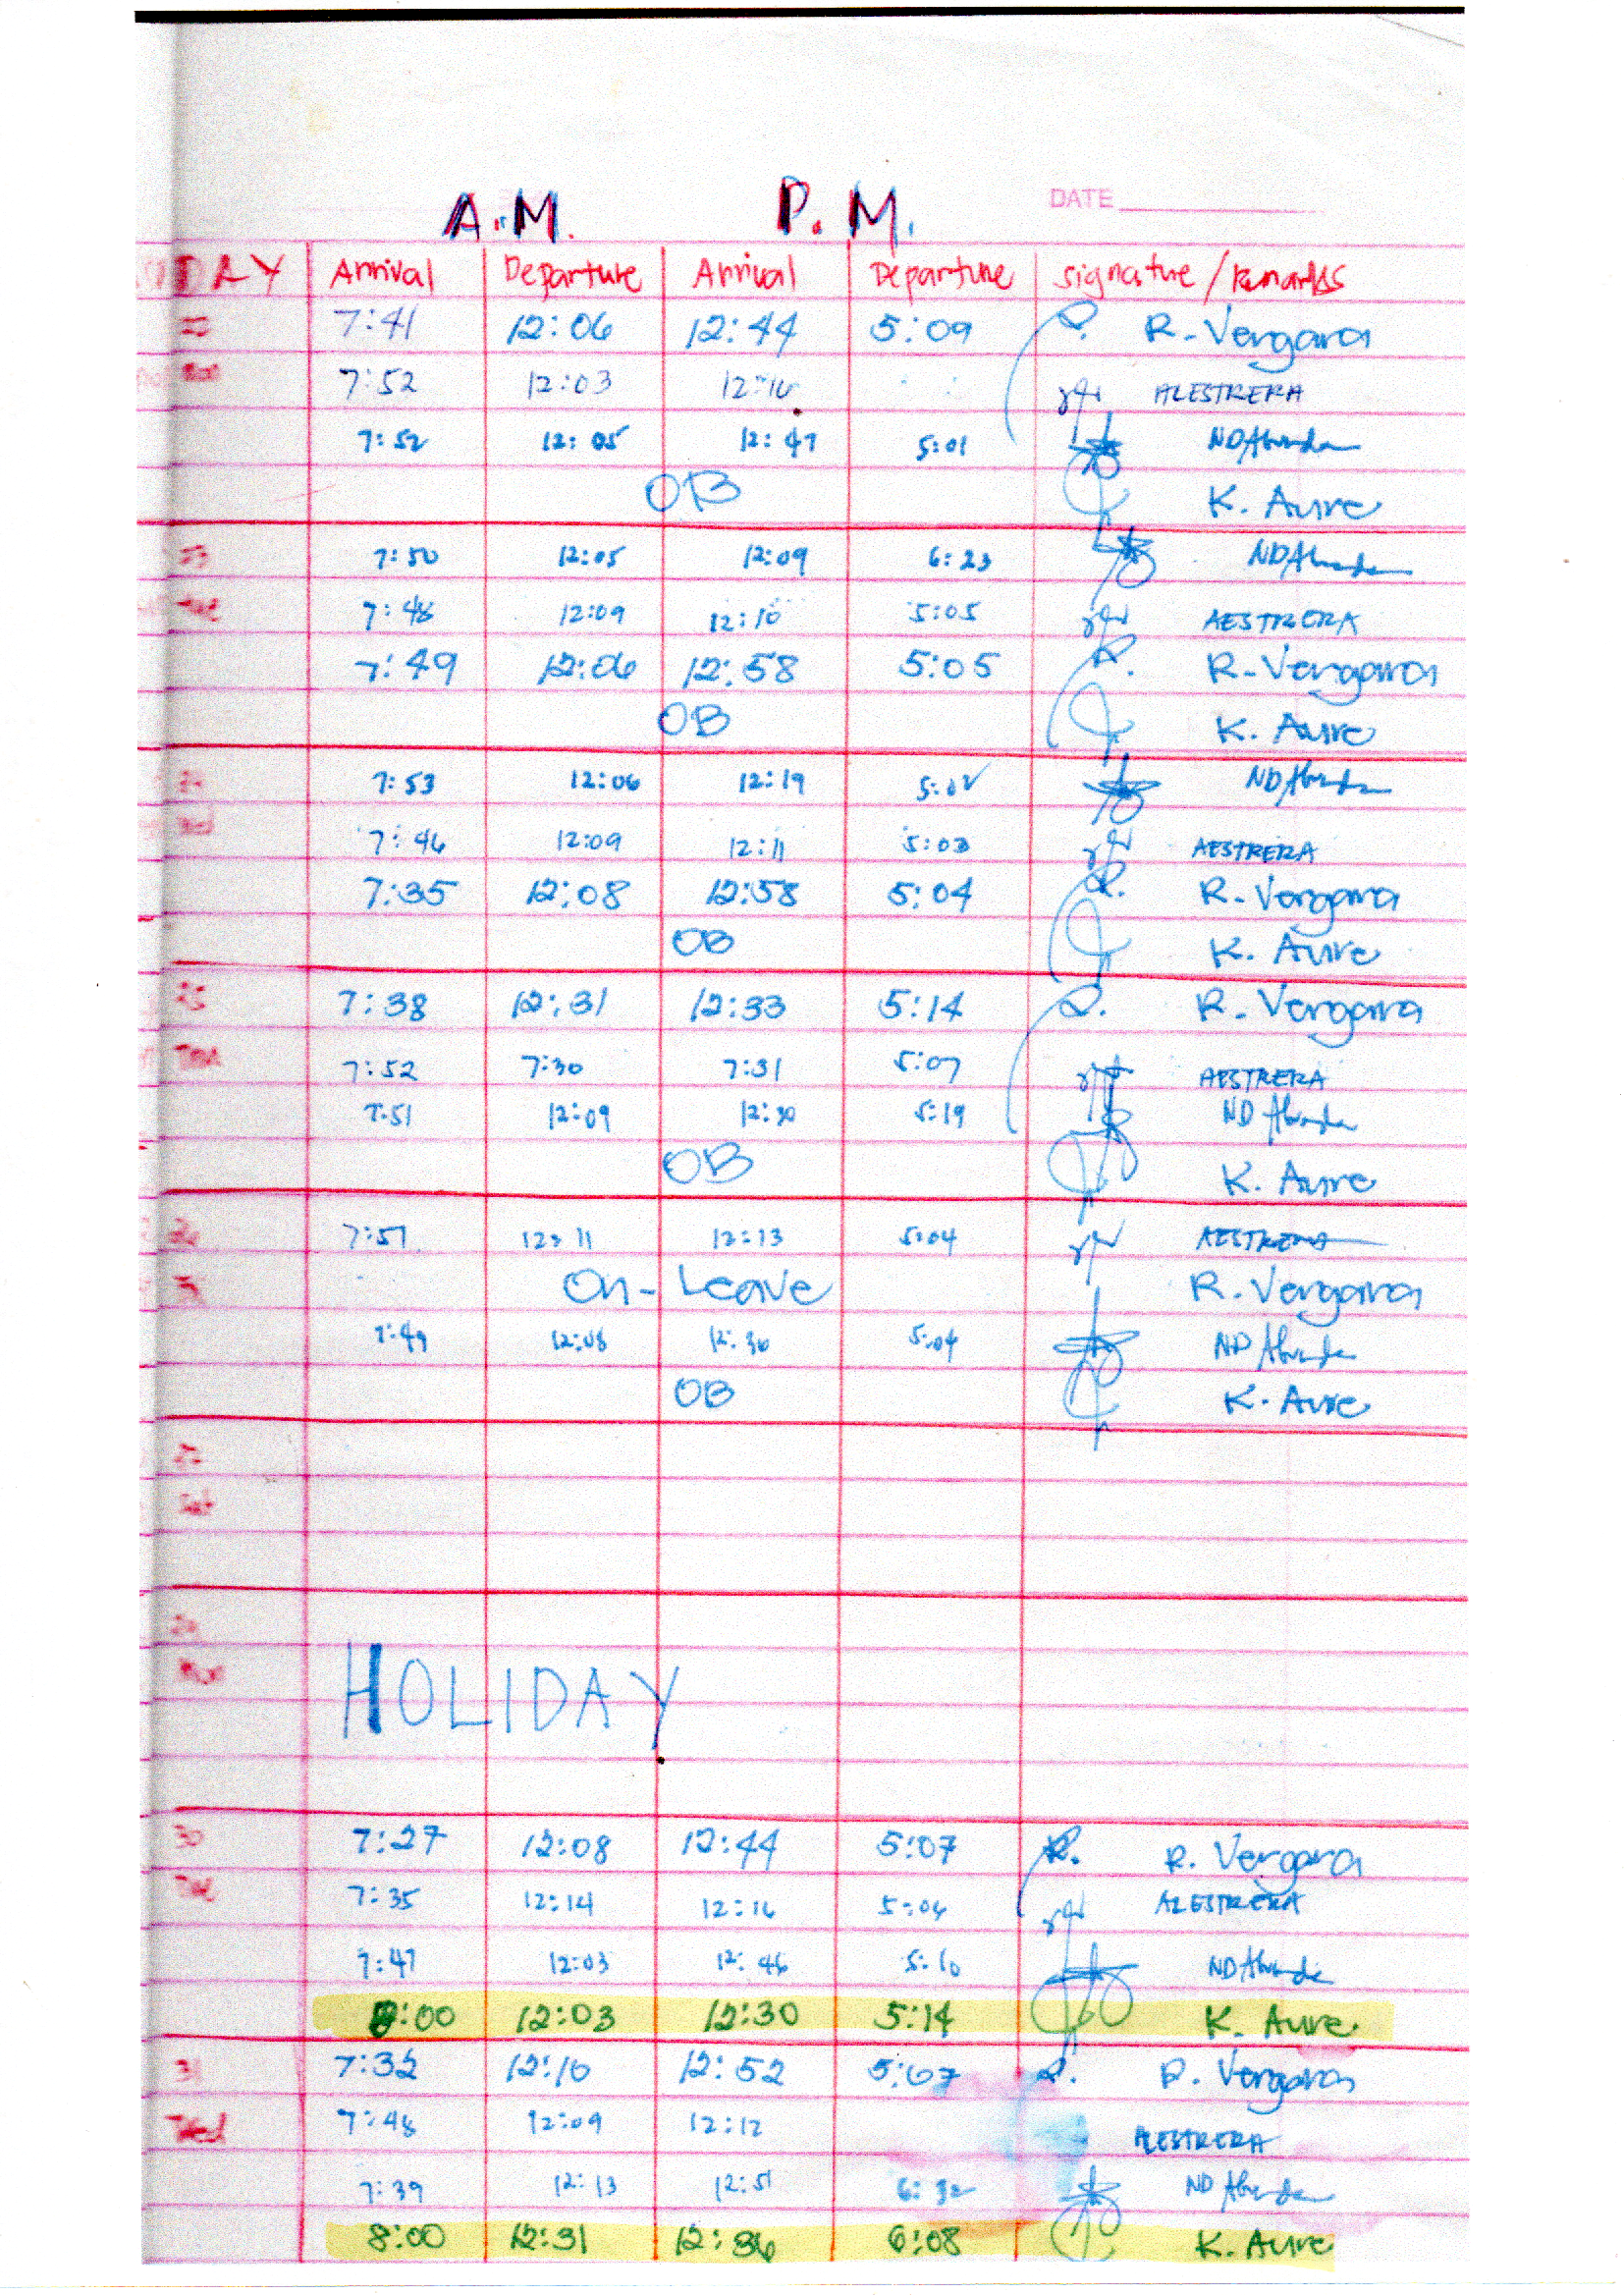 A.M. P.M. DATE
DAY Arrival Departure Arrival Departure Signature / Remarks
22 7:41 12:06 12:44 5:09 R. Vergara
Mon 7:52 12:03 12:16 ALESTRERA
7:52 12:05 12:47 5:01 ND Abunda
OB K. Aure
23 7:50 12:05 12:09 6:23 ND Abunda
Tue 7:48 12:09 12:10 5:05 AESTRERA
7:49 12:06 12:58 5:05 R. Vergara
OB K. Aure
7:53 12:06 12:19 5:02 ND Abunda
Wed 7:46 12:09 12:11 5:03 AESTRERA
7:35 12:08 12:58 5:04 R. Vergara
OB K. Aure
25 7:38 12:31 12:33 5:14 R. Vergara
7:52 7:30 7:31 5:07 AESTRERA
7:51 12:09 12:30 5:19 ND Abunda
OB K. Aure
7:51 12:11 12:13 5:04 AESTRERA
On-Leave R. Vergara
7:49 12:08 12:36 5:04 ND Abunda
OB K. Aure
27
Sat
HOLIDAY
30 7:27 12:08 12:44 5:07 R. Vergara
Tue 7:35 12:14 12:16 5:04 ALESTRERA
7:47 12:03 12:46 5:10 ND Abunda
8:00 12:03 12:30 5:14 K. Aure
31 7:32 12:10 12:52 5:07 R. Vergara
Wed 7:48 12:09 12:12 ALESTRERA
7:39 12:13 12:51 6:32 ND Abunda
8:00 12:31 12:36 6:08 K. Aure